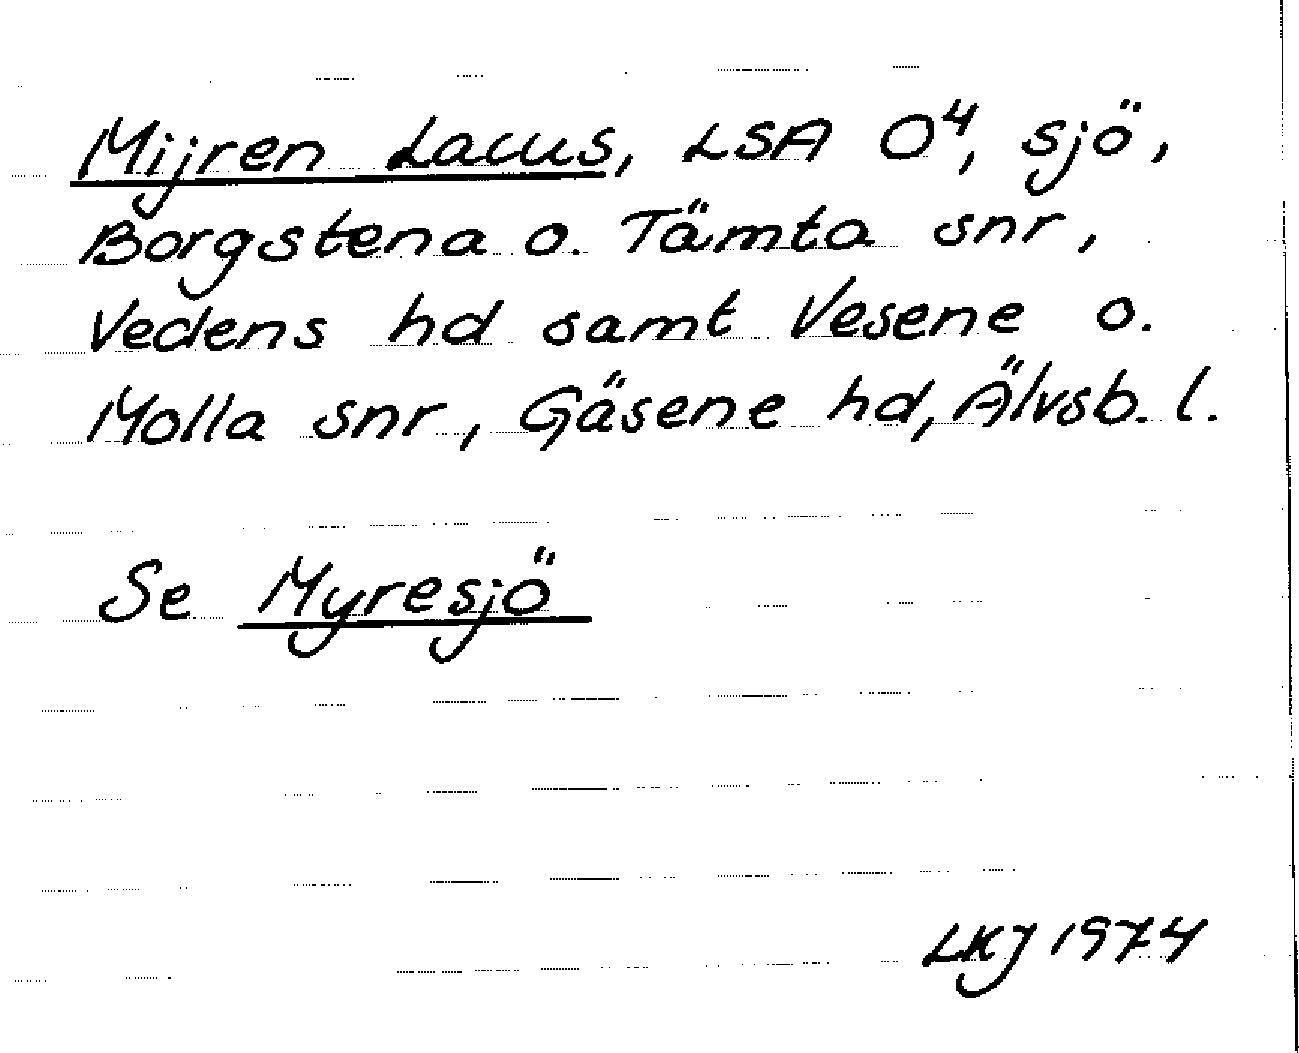 Mijren Lacus, LSA O⁴, sjö,
Borgstena o. Tämta snr,
Vedens hd samt Vesene o.
Molla snr, Gäsene hd, Älvsb. l.
Se Myresjö
LKJ 1974